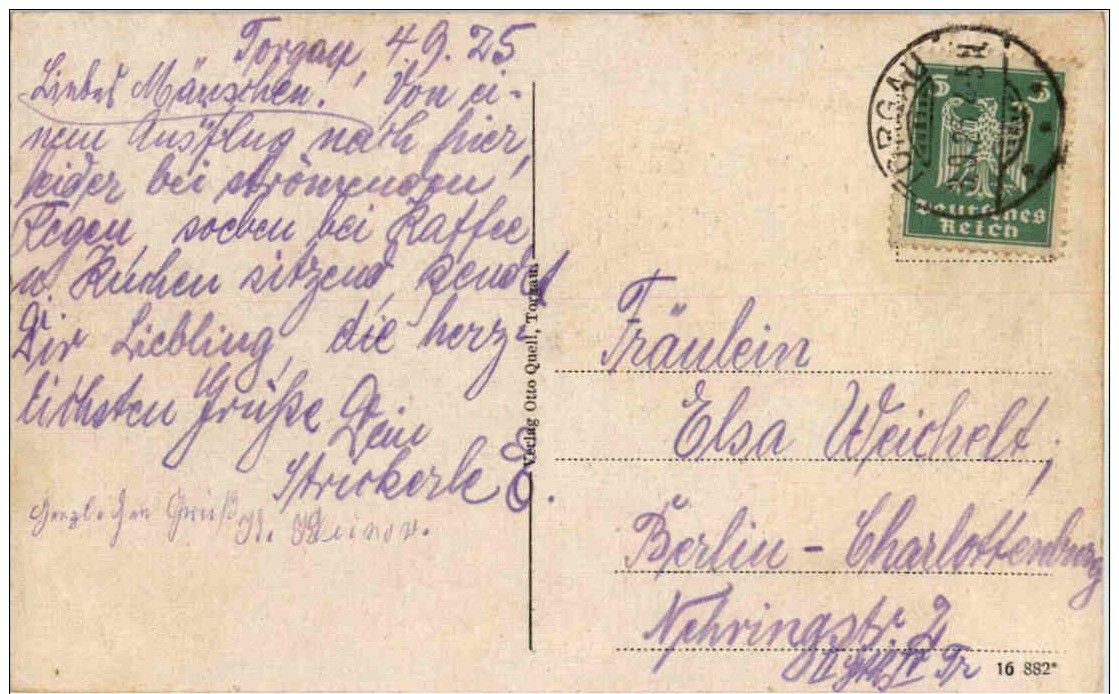 Torgau, 4.9.25
Liebes Mäuschen! Von ei-
nem Ausflug nach hier,
leider bei strömenden
Regen, soeben bei Kaffee
u. Kuchen sitzend, sendet
Dir Liebling, die herz-
lichsten Grüße Dein
Strickerle
Herzlichen Gruß
Verlag Otto Quell, Torgau
TORGAU
5 5
Deutsches
Reich
Fräulein
Elsa Weichelt,
Berlin - Charlottenburg
Nehringstr. 2
16 882*